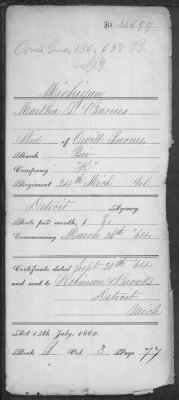 No. 36599
Michigan
Martha D. Barnes
Wid of Orvill Barnes
Rank Priv
Company "K"
Regiment 24th Mich Vol
Detroit Agency
Rate per month, 8
Commencing March 28th '64
Certificate dated Sept 30th '64
and sent to Robinson & Brooks
Detroit
Mich
Act 14th July, 1862.
Book B Vol. 3 Page 77